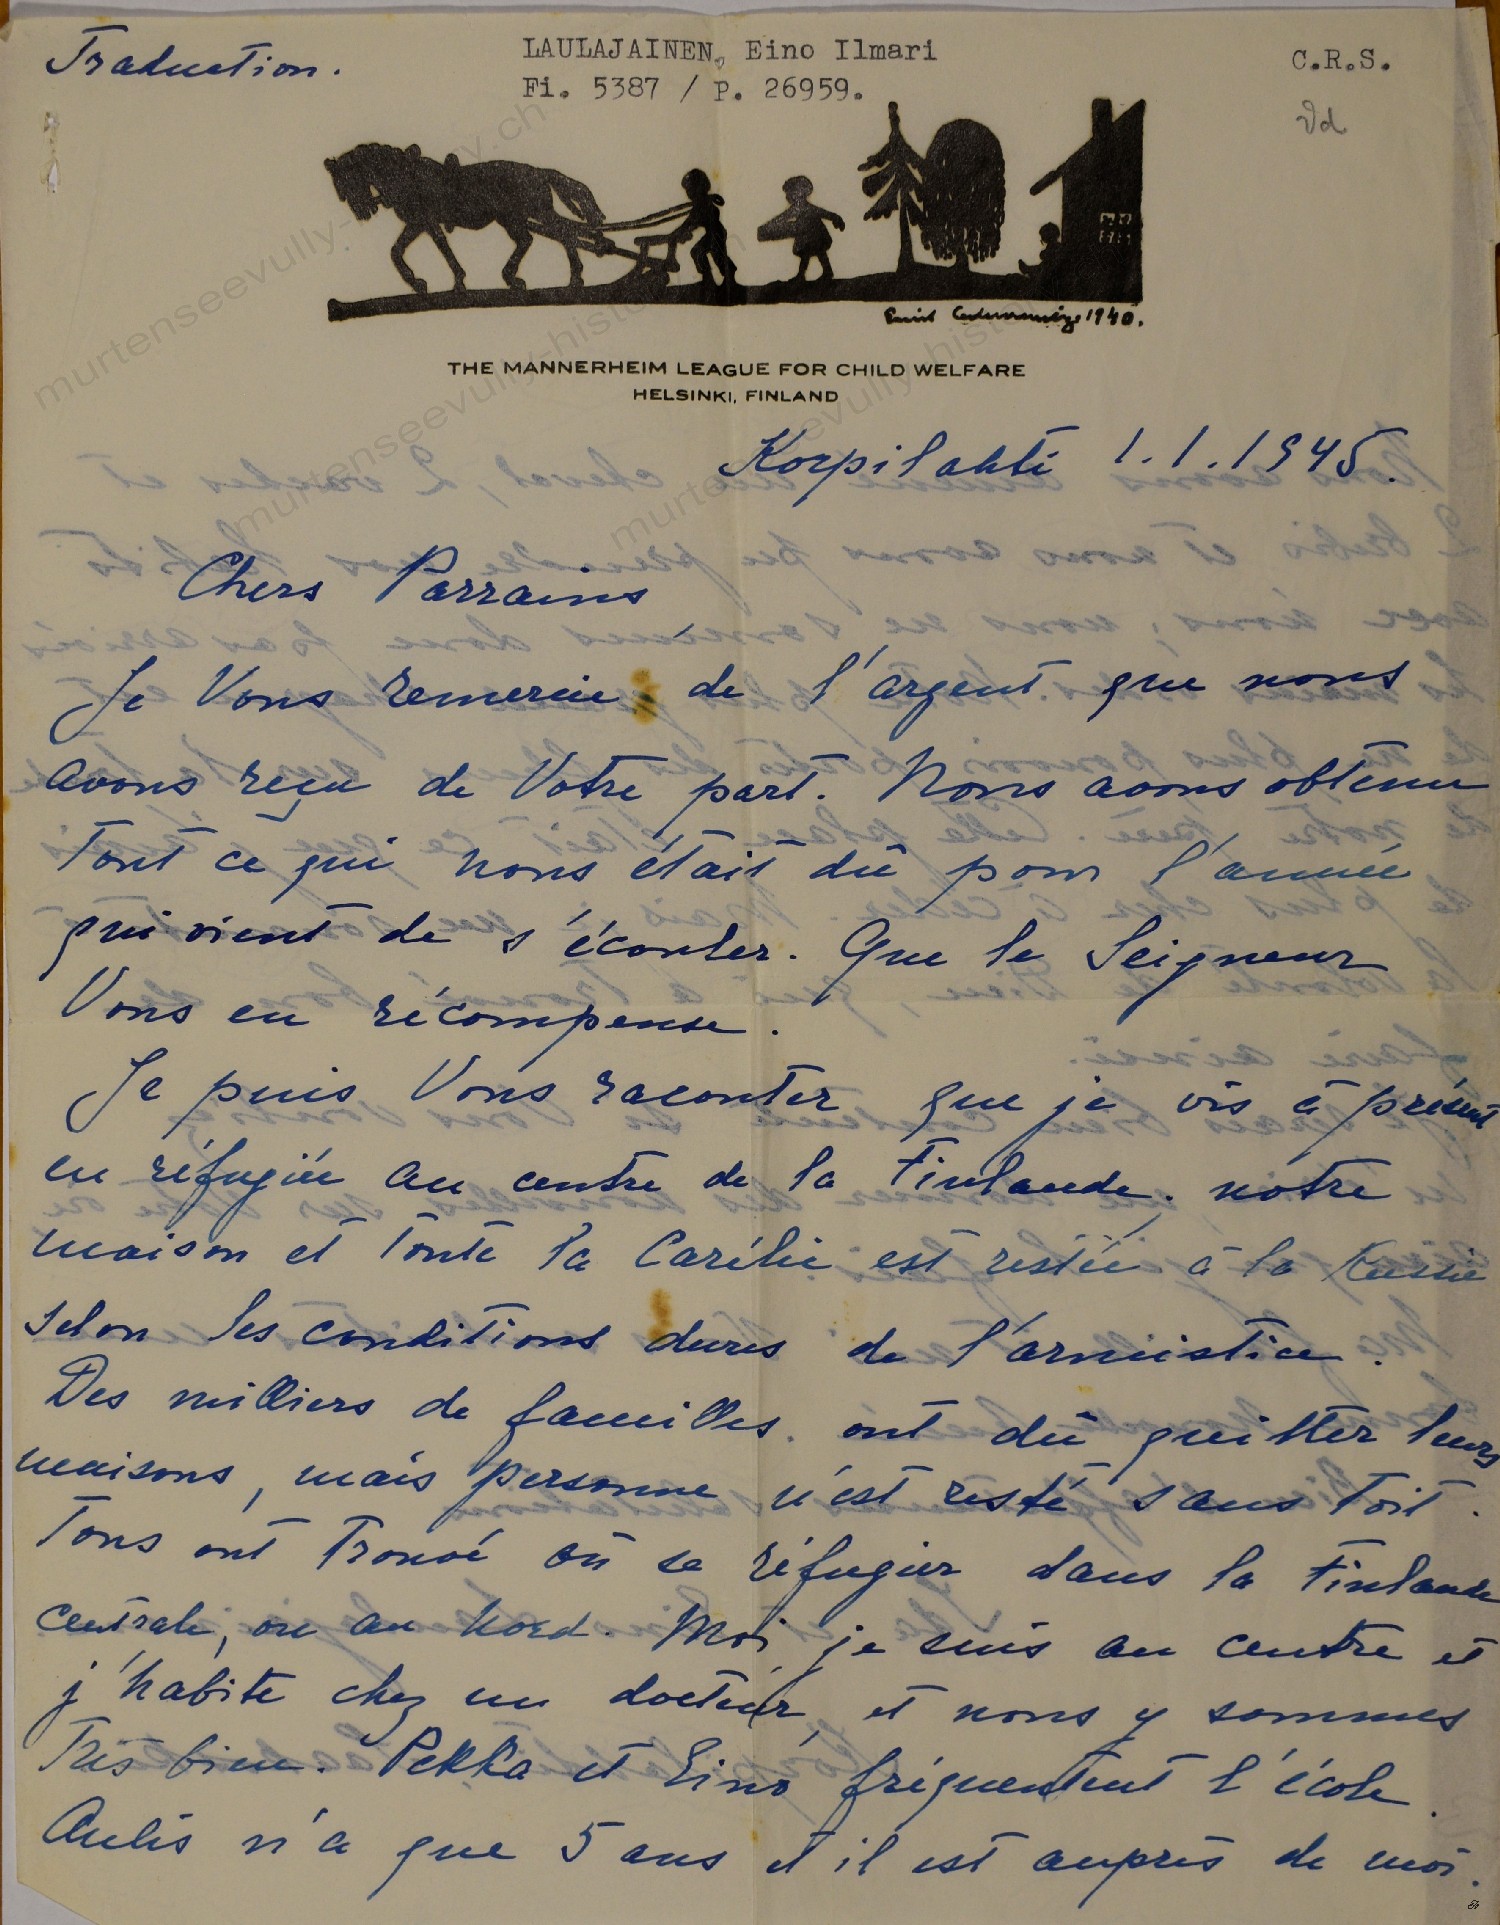 Traduction.
LAULAJAINEN, Eino Ilmari
C.R.S.
Fi. 5387 / P. 26959.
Vd
1940.
THE MANNERHEIM LEAGUE FOR CHILD WELFARE
HELSINKI, FINLAND
Korpilahti 1.1.1945.
Chers Parrains
Je Vous remercie de l'argent que nous
avons reçu de Votre part. Nous avons obtenu
tout ce qui nous était dû pour l'année
qui vient de s'écouler. Que le Seigneur
Vous en récompense.
Je puis Vous raconter que je vis à présent
en réfugiée au centre de la Finlande. notre
maison et toute la Carélie est restée à la Russie
selon les conditions dures de l'armistice.
Des milliers de familles ont dû quitter leurs
maisons, mais personne n'est resté sans toit.
Tous ont trouvé où se réfugier dans la Finlande
centrale, ou au Nord. Moi je suis au centre et
j'habite chez un docteur, et nous y sommes
très bien. Pekka et Eino fréquentent l'école.
Aulis n'a que 5 ans et il est auprès de moi.
murtenseevully-histo
murtenseevully.ch